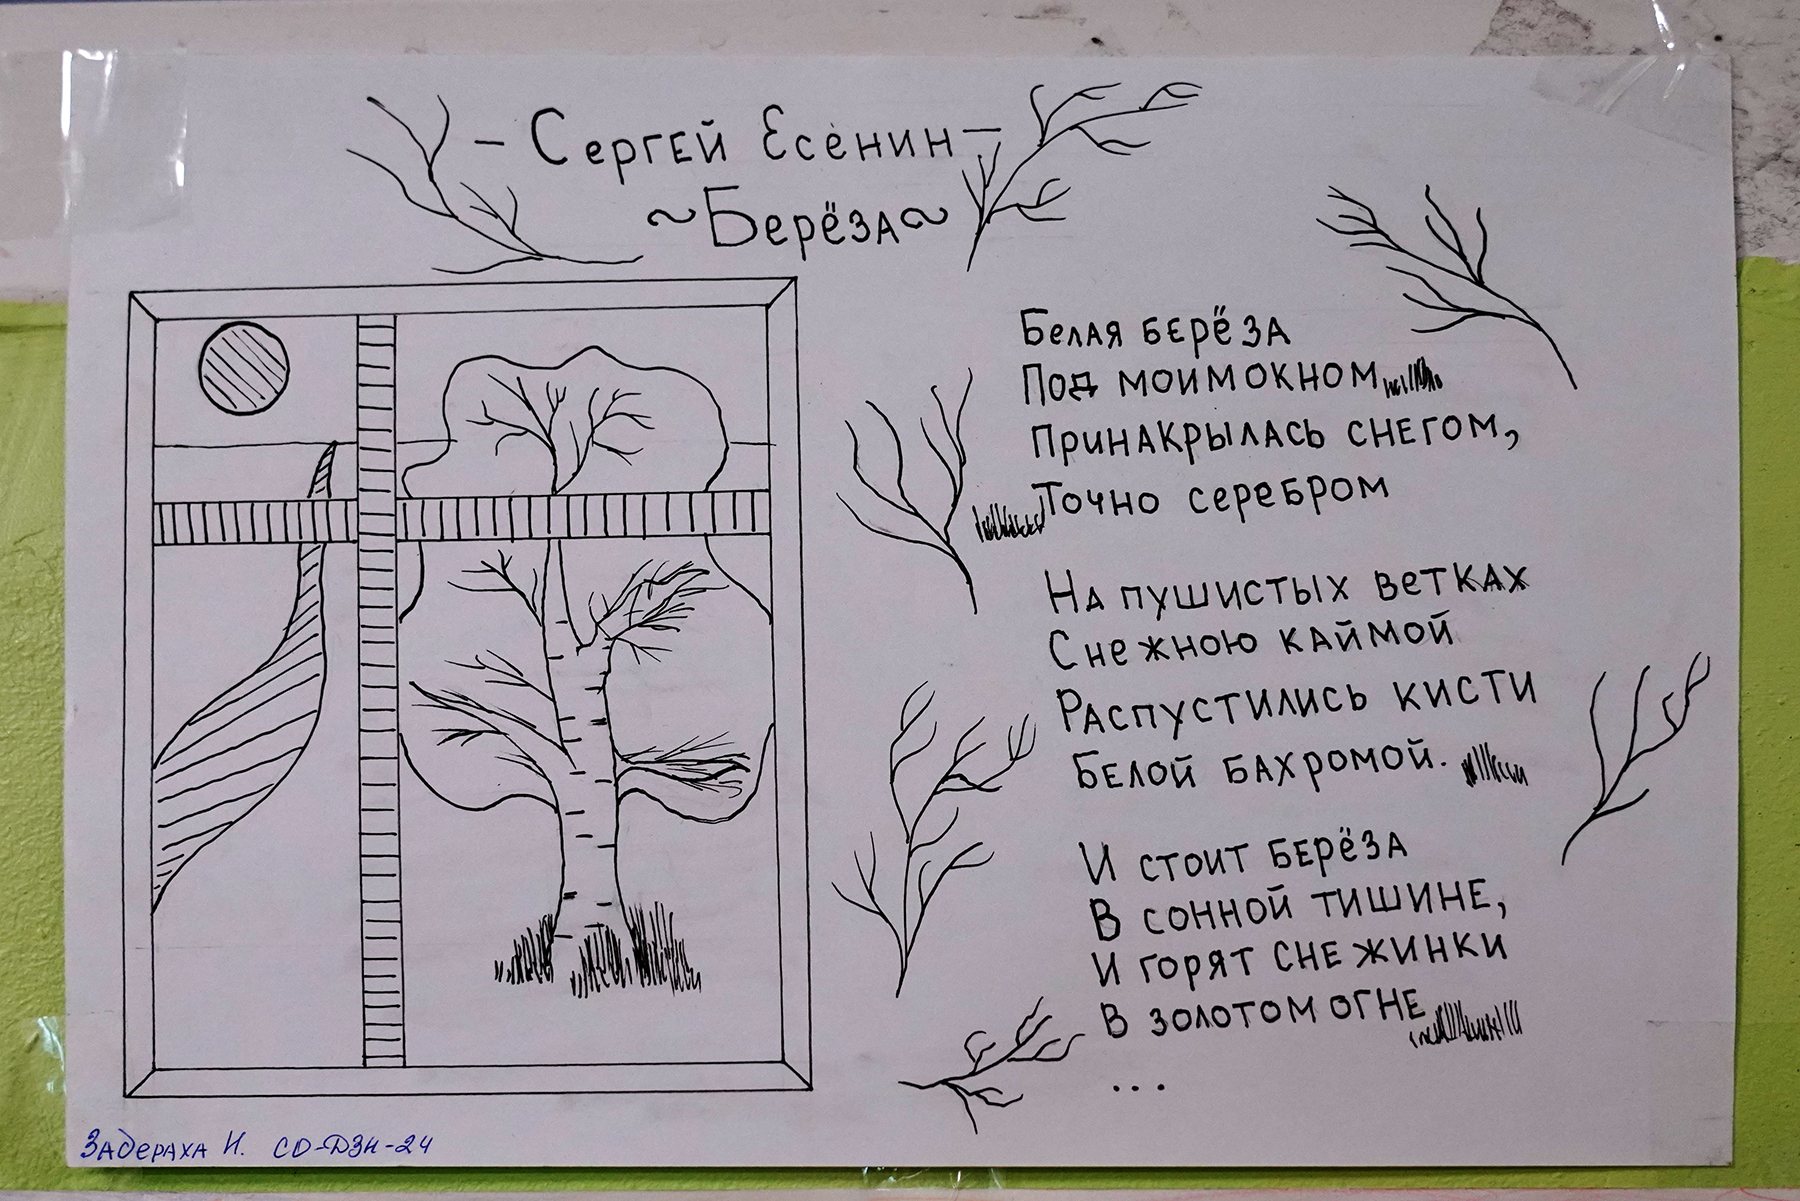 - Сергей Есенин -
~ Берёза ~
Белая берёза
Под моим окном
Принакрылась снегом,
Точно серебром
На пушистых ветках
Снежною каймой
Распустились кисти
Белой бахромой.
И стоит берёза
В сонной тишине,
И горят снежинки
В золотом огне
...
Задераха И. СО-ДЗН-24